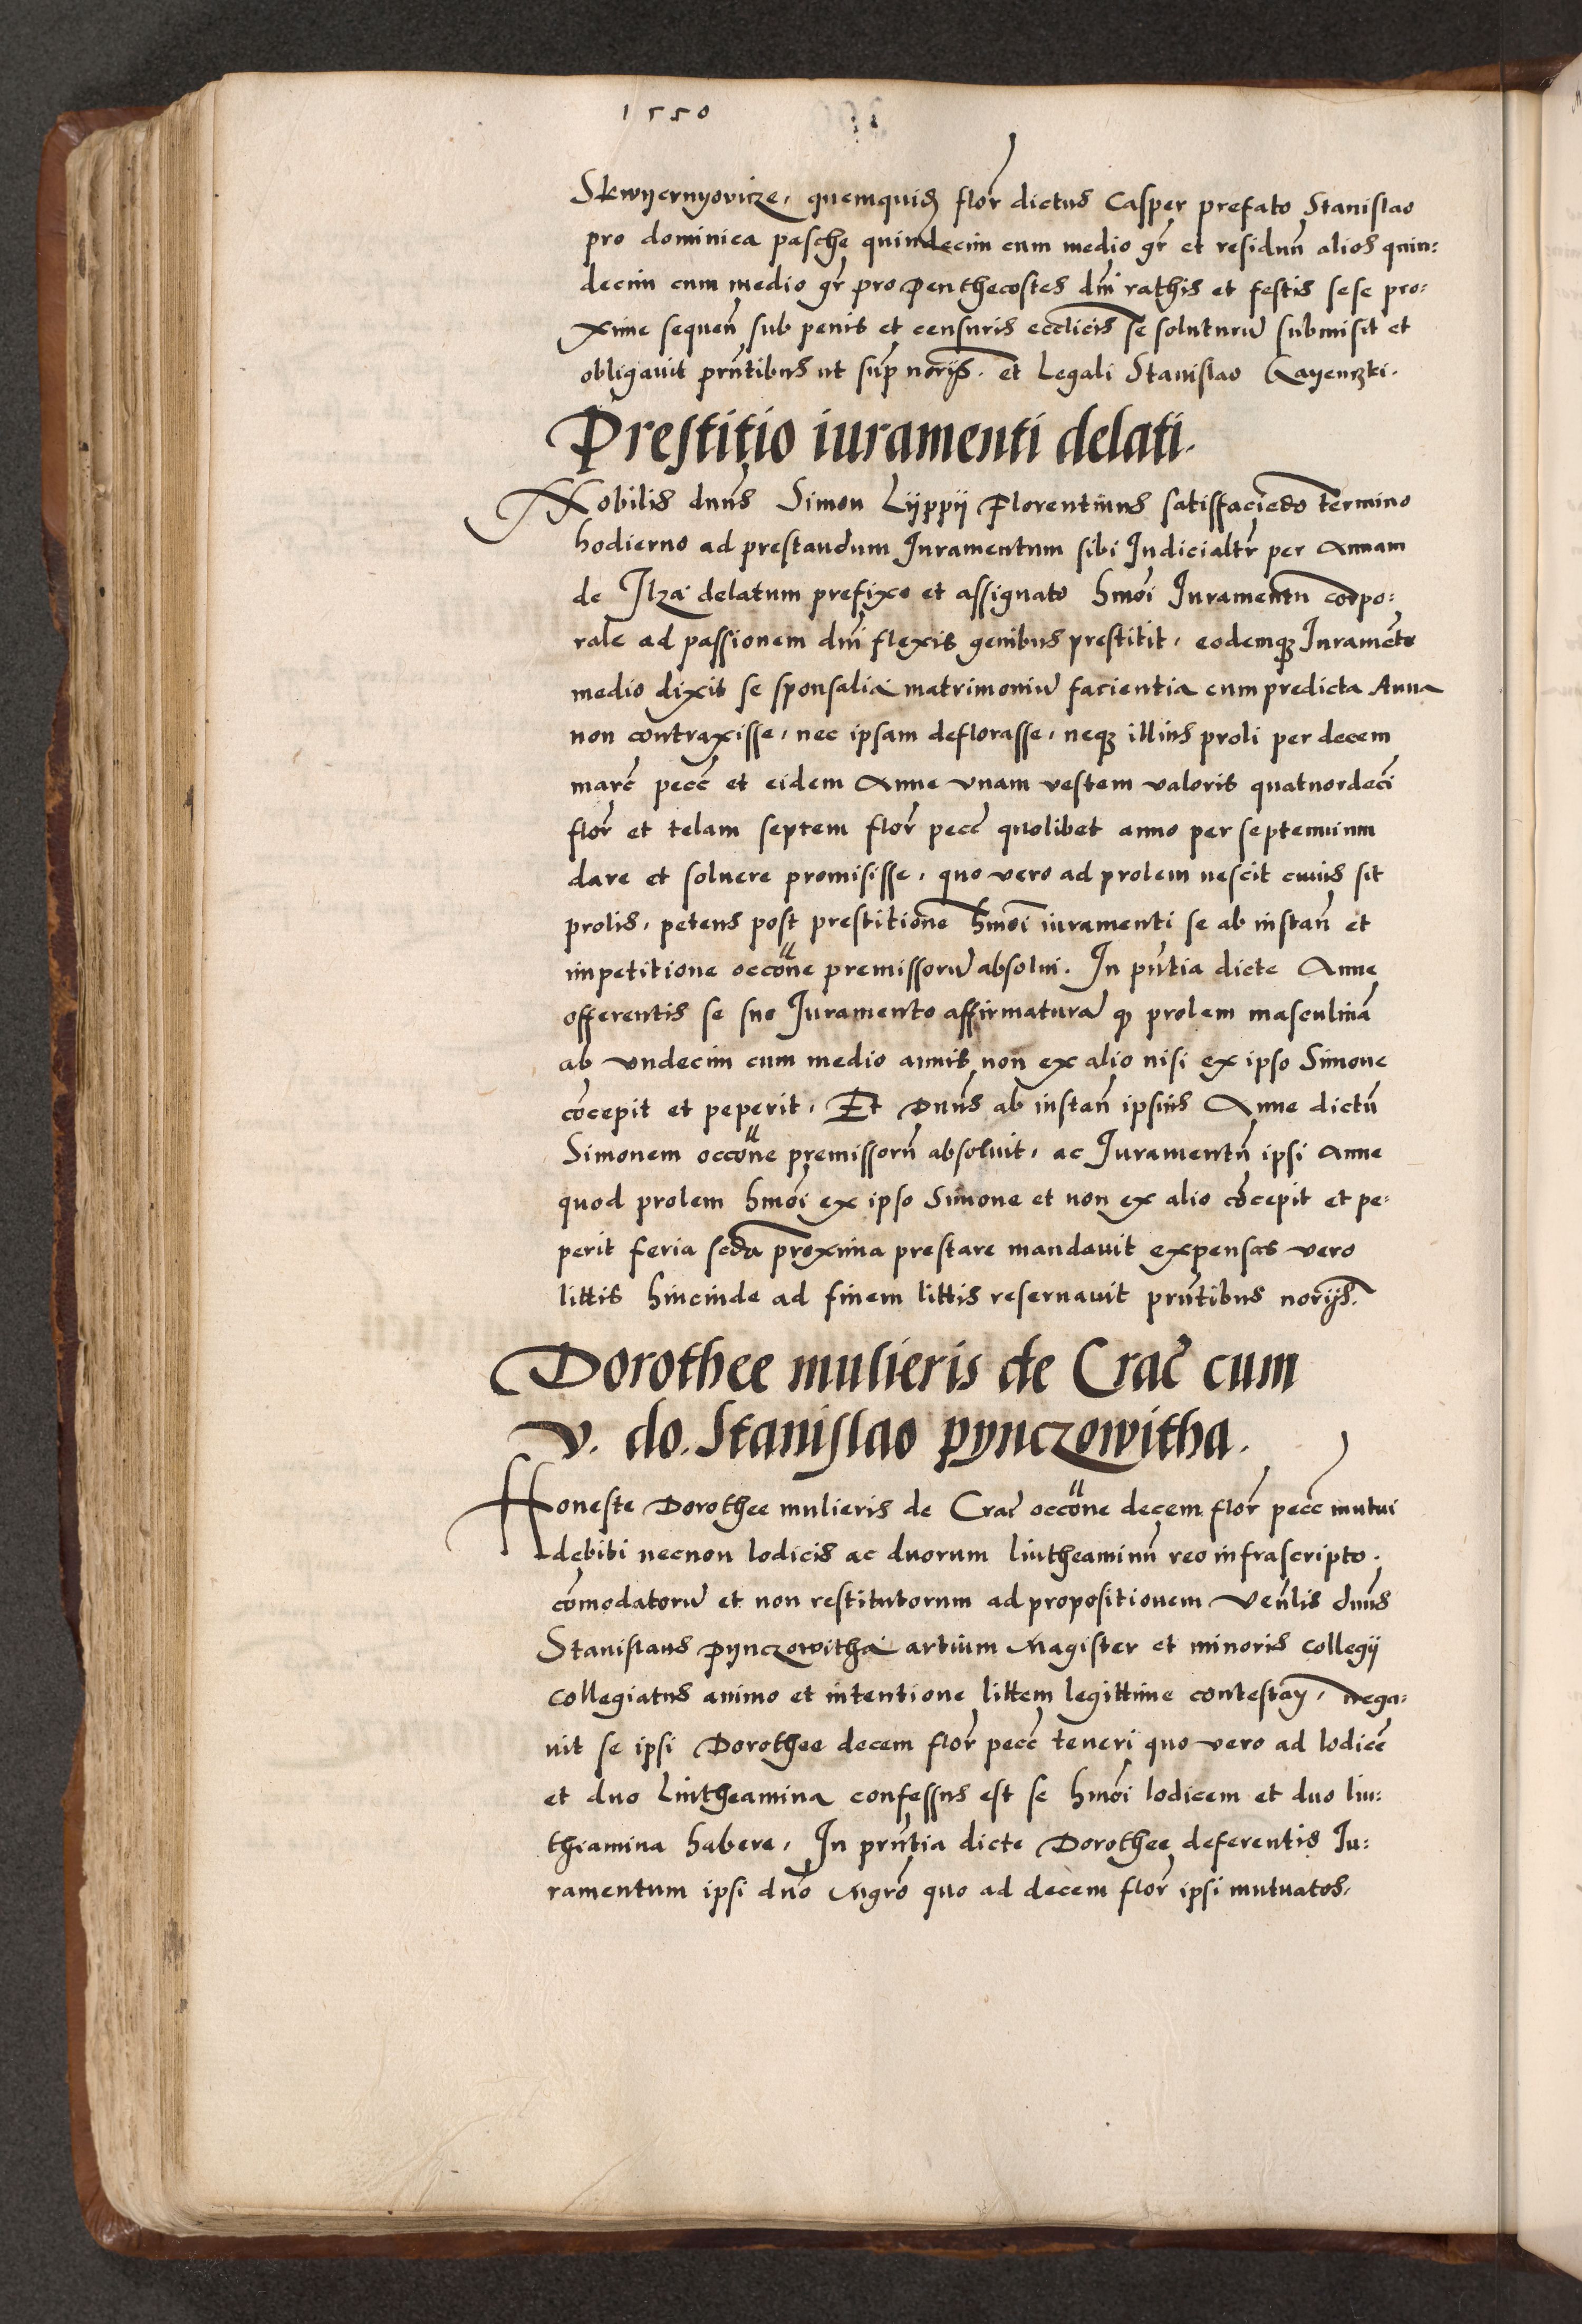 1550
Skwyernyovicze, quemquid flor̃ dictus Casper prefato Stanislao
pro dominica pasche quindecim cum medio gr̃ et residuũ alios quin:
decim cum medio gr̃ pro Penthecostes dni rathis et festis sese pro:
xime sequeñ sub penis et censuris ecclicis se soluturũ submisit et
obligavit prñtibus ut sup̃ norijs. et Legali Stanislao
Prestitio iuramenti delati.
Nobilis dnus Simon Lyppij Florentinus satisfaciẽdo termino
hodierno ad prestandum Iuramentum sibi Iudicialtr̃ per Annam
de Ilza delatum prefixo et assignato hmõi Iuramentũ corpo:
rale ad passionem dni flexis genibus prestitit, eodemq3 Iuramẽto
medio dixit se sponsalia matrimoniũ facientia cum predicta Anna
non contraxisse, nec ipsam deflorasse, neq3 illius proli per decem
marc̃ pecc̃ et eidem Anne unam vestem valoris quatuordeci
flor̃ et telam septem flor̃ pecc̃ quolibet anno per septennium
dare et soluere promisisse, quo vero ad prolem nescit cuius sit
prolis, petens post prestitionẽ hmõi iuramenti se ab instañ et
impetitione occõne premissorũ absolui. In pñtia dicte Anne
offerentis se suo Iuramento affirmaturã q prolem masculinã
ab undecim cum medio annis non ex alio nisi ex ipso Simone
cõcepit et peperit, Et Dnus ab instañ ipsius Anne dictũ
Simonem occõne premissorũ absoluit, ac Iuramentũ ipsi Anne
quod prolem hmõi ex ipso Simone et non ex alio cõcepit et pe:
perit feria scda proxima prestare mandavit expensas vero
littis hincinde ad finem littis reservavit prñtibus norijs.
Dorothee mulieris de Crac̃ cum
V. do. Stanislao Pynczowitha.
Honeste Dorothee mulieris de Crac̃ occõne decem flor̃ pecc̃ mutui
debiti necnon lodicis ac duorum lintheaminũ reo infrascripto.
cõmodatorũ et non restitutorum ad propositionem Veñlis dnus
Stanislaus Pynczowitha artium Magister et minoris collegij
collegiatus animo et intentione littem legittime contestañ, nega:
uit se ipsi Dorothee decem flor̃ pecc̃ teneri quo vero ad lodicẽ
et duo Lintheamina confessus est se hmõi lodicem et duo lin:
thiamina habere, In prñtia dicte Dorothee deferentis Iu:
ramentum ipsi dño Mgrõ quo ad decem flor̃ ipsi mutuatos,